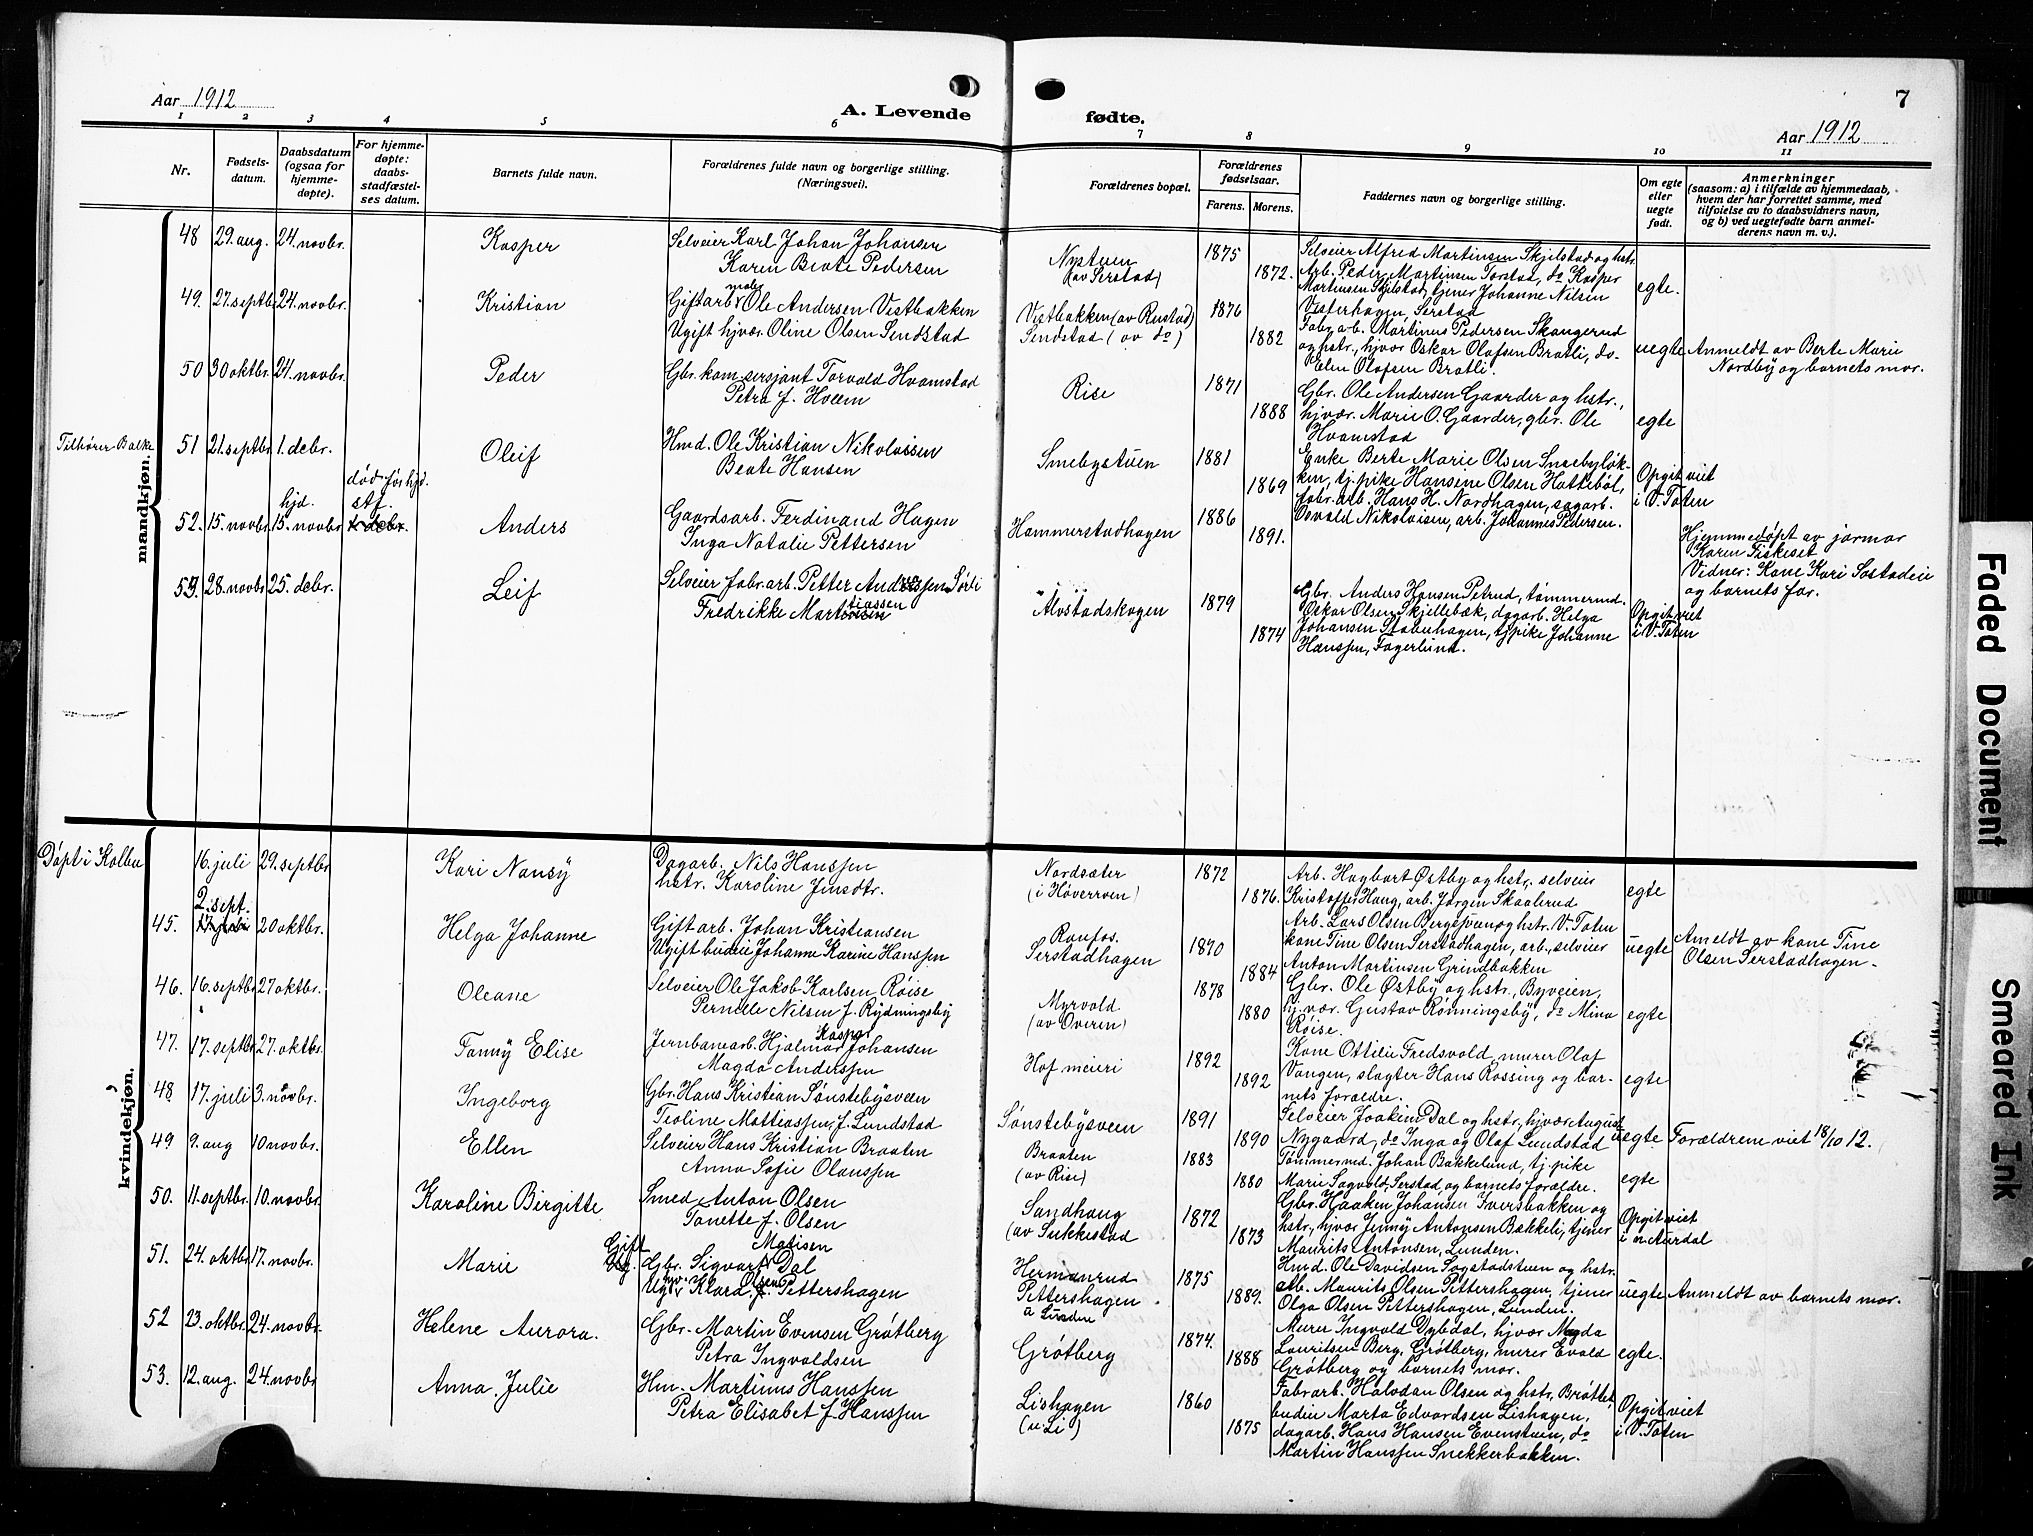 Aar 1912
A. Levende
fødte.
7
Aar 1912
1 2 3 4 5 6 7 8 9 10 11
Nr.
Fødsels-
datum.
Daabsdatum
(ogsaa for
hjemme-
døpte).
For hjemme-
døpte:
daabs-
stadfæstel-
ses datum.
Barnets fulde navn.
Forældrenes fulde navn og borgerlige stilling.
(Næringsvei).
Forældrenes bopæl.
Forældrenes
fødselsaar.
Farens. Morens.
Faddernes navn og borgerlige stilling.
Om egte
eller
uegte
født.
Anmerkninger
(saasom: a) i tilfælde av hjemmedaab,
hvem der har forrettet samme, med
tilføielse av to daabsvidners navn,
og b) ved uegtefødte barn anmel-
derens navn m. v.).
mandkjøn.
48 29. aug. 24. novbr. Kasper
Selveier Karl Johan Johansen
Karen Beate Pedersen
Nystuen
(av Serstad)
1875
1872.
Selveier Alfred Martinsen Skjelstad og hstr.
Arb. Peder Martinsen Torstad, do Kasper
Martinsen Skjelstad, tjener Johanne Nilsen
Vesterhagen, Serstad
egte.
49. 27. septbr. 24. novbr. Kristian
Gift arb. Ole Andersen Vestbakken
Ugift hjvær. Oline Olsen Sendstad
Vestbakken (av Rustad)
Sendstad (av do)
1876
1882
Fabr. arb. Martinus Pedersen Skangerud
og hstr., hjvær Oskar Olafsen Bratli, do-
Elen Olafsen Bratli.
uegte
Anmeldt av Berte Marie
Nordby og barnets mor.
50 30 oktbr. 24. novbr. Peder
Gbr. kom. sersjant Torvald Hvamstad
Petra f. Hveem
Rise
1871
1888
Gbr. Ole Andersen Gaarder og hstr.,
hjvær. Marie O. Gaarder, gbr. Ole
Hvamstad
egte
Tilhører Balke
51 21. septbr. 1. debr. Oleif
Hmd. Ole Kristian Nikolaisen
Beate Hansen
Smebystuen
1881
1869
Enke Berte Marie Olsen Smebyløk-
ken, tj. pike Hansine Olsen Hattebøl,
fabr. arb. Hans H. Nordhagen, sagarb.
Osvald Nikolaisen, arb. Johannes Pedersen.
Opgit viet
i V. Toten
52. 15. novbr. hjd. 15. novbr. død før hjd. stf. Anders
Gaardsarb. Ferdinand Hagen
Inga Natalie Pettersen
Hammerstadhagen
1886
1891.
Hjemmedøpt av jormor
Karen Fiskeset
Vidner: Kone Kari Sostadeie
og barnets far.
53. 28. novbr. 25. debr. Leif
Selveier fabr. arb. Petter Anderssen Sørli
Fredrikke Martinsen
Alvstadskogen
1879
1874
Gbr. Anders Hansen Petrud, tømmermd.
Oskar Olsen Skjellebæk, dagarb. Helga
Johansen Stabuhagen, tj. pike Johanne
Hanssen, Fagerlund.
Opgit viet
i V. Toten
kvindekjøn.
Døpt i Kolbu
16. juli 29. septbr. Kari Nansy
Dagarb. Nils Hanssen
hstr. Karoline Jensdtr.
Nordsæter
(i Høverroen)
1872
1876.
Arb. Hagbart Østby og hstr. selveier
Kristoffer Haug, arb. Jørgen Skaalerud
egte
45. 2. sept. 20 oktbr. Helga Johanne
Gift arb. Johan Kristiansen
Ugift budeie Johanne Karine Hanssen
Raufos.
Serstadhagen
1870
1884
Arb. Lars Olsen Bergsveen og hstr. V. Toten
kone Tine Olsen Serstadhagen, arb., selveier
Anton Martinsen Grindbakken
uegte
Ameldt av kone Tine
Olsen Serstadhagen.
46. 16. septbr. 27 oktbr. Oleane
Selveier Ole Jakob Karlsen Røise
Pernille Nilsen f. Rydningsby
Myrvold
(av Overen)
1878
1880
Gbr. Ole Østby og hstr., Byveien,
hj. vær. Gustav Rønningsby, do Mina
Røise.
egte
47. 17. septbr. 27. oktbr. Fanny Elise
Jernbanearb. Hjalmar Kasper Johansen
Magda Anderssen
Hof meieri
1892
1892
Kone Ottilie Fredsvold, murer Olaf
Vangen, slagter Hans Rossing og bar-
nets forældre.
egte
48 17. juli 3. novbr. Ingeborg
Gbr. Hans Kristian Sønstebysveen
Teoline Mattiassen f. Lundstad
Sønstebysveen
1891
1890
Selveier Joakim Dal og hstr, hjvær August
Nygaard, do Inga og Olaf Lundstad
uegte
Forældrene viet 18/10 12.
49 9. aug 10 novbr. Ellen
Selveier Hans Kristian Braaten
Anna Sofie Olaussen
Braaten
(av Rise)
1883
1880
Tømmermd. Johan Bakkelund, tj. pike
Marie Sagvold, Serstad og barnets forældre.
egte
50. 11. septbr. 10. novbr. Karoline Birgitte
Smed Anton Olsen
Tanette f. Olsen
Sandhaug
(av Sukkestad
1872
1873
Gbr. Haaken Johansen Iversbakken og
hstr., hjvær Jenny Antonsen Bækkeli, tjener
Maurits Antonsen, Lunden.
Opgit viet
i n. Aurdal
51. 24. oktbr. 17. novbr. Marie
Gift Gbr. Sigvart Matisen Dal
Klara Olsen Pettershagen
Hermanrud
Pettershagen
a Lunden
1875
1889.
Hmd. Ole Davidsen Sogstadstuen og hstr.
arb. Maurits Olsen Pettershagen, tjener
Olga Olsen Pettershagen, Lunden.
uegte
Anmeldt av barnets mor.
52 23. oktbr. 24. novbr. Helene Aurora.
Gbr. Martin Evensen Grøtberg
Petra Ingvaldsen
Grøtberg
1874.
1888
Murer Ingvald Dybdal, hjvær Magda
Lauritsen Berg, Grøtberg, murer Evald
Grøtberg og barnets mor.
egte.
53. 12. aug. 24. novbr Anna Julie
Hm. Martinus Hanssen
Petra Elisabet f. Hanssen
Lishagen
(u Li)
1860
1875
Fabr. arb. Halvdan Olsen og hstr. Brøttet
budeie Marta Edvardsen Lishagen,
dagarb. Hans Hansen Evenstuen, do
Martin Hanssen Snekkerbakken.
Opgit viet
i V. Toten
Faded Document
Smeared Ink